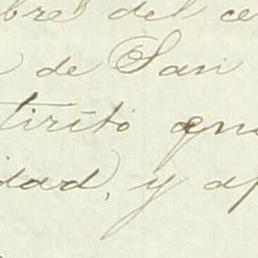 bre del ce
de San
tirito que
dad, y ap